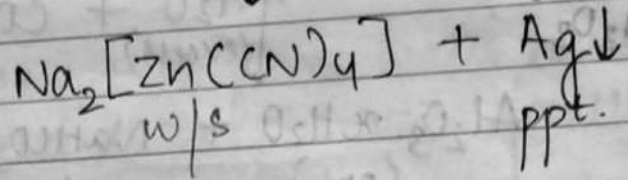 Na₂[Zn(CN)₄] + Ag↓
w/s ppt.